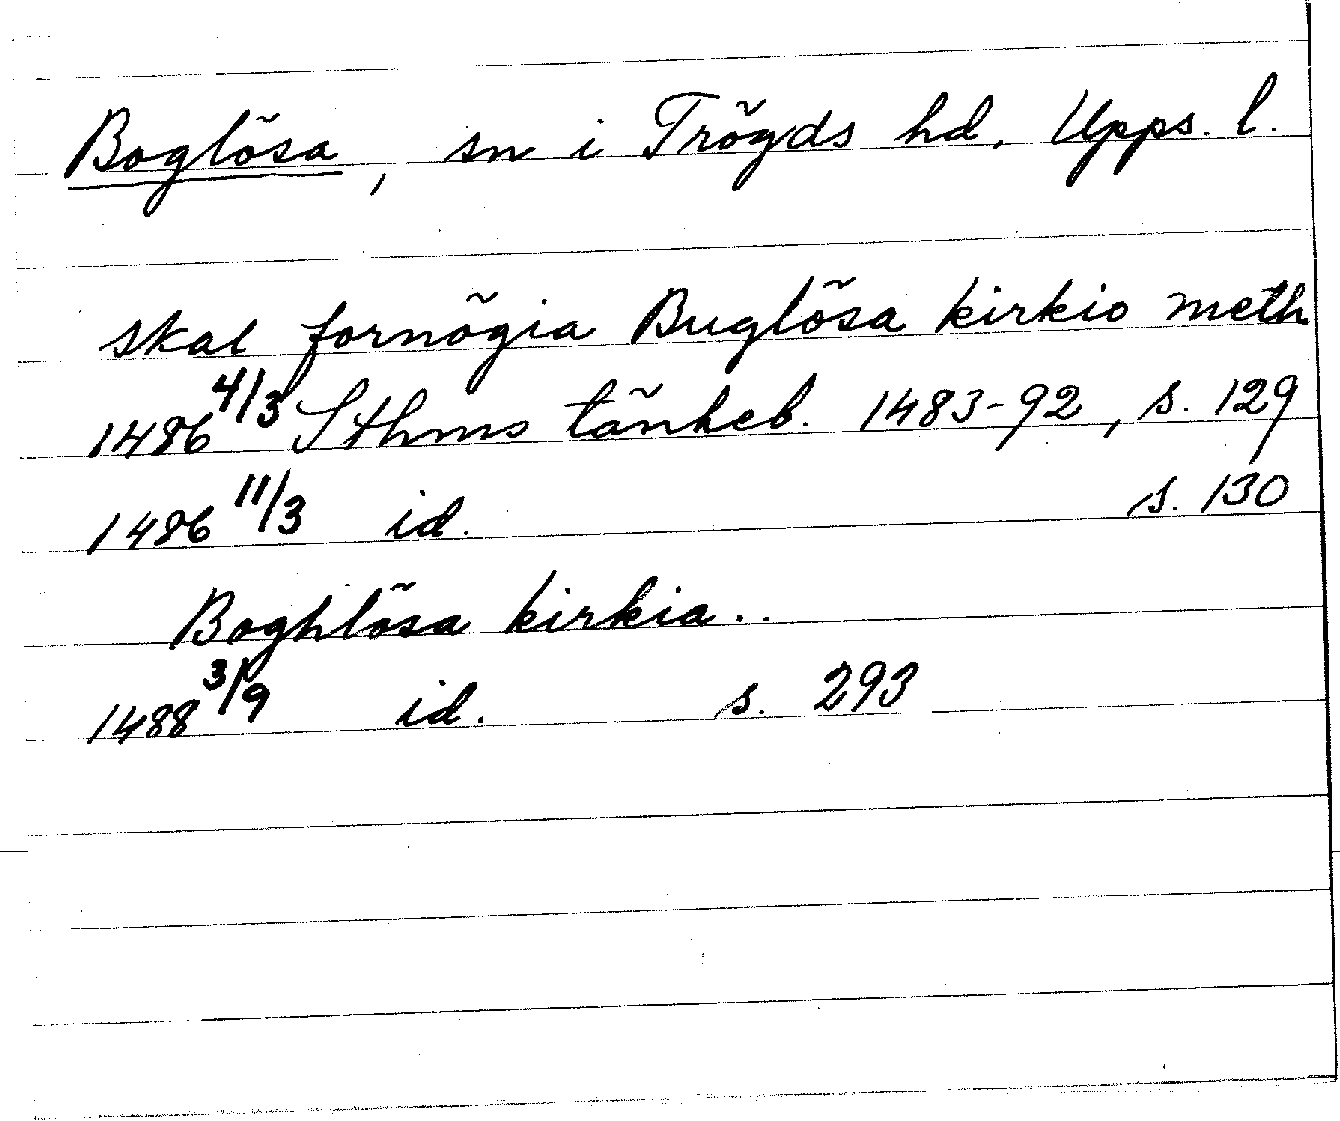 Boglösa, sn i Trögds hd. Upps. l.
skal fornögia Buglösa kirkio meth
1486 4/3 Sthms tänkeb. 1483-92, s. 129
1486 11/3 id. s. 130
Boghlösa kirkia..
1488 3/9 id. s. 293